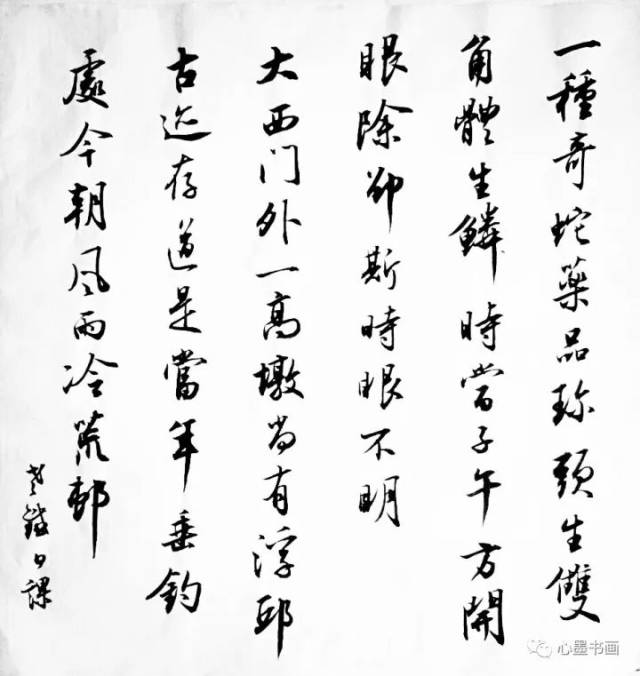 一種奇蛇藥品珍頭生雙
角體生鱗時當子午方開
眼除卻斯時眼不明
大西门外一高墩尚有浮邱
古迹存道是當年垂釣
處今朝风雨冷荒邨
日課
心墨书画